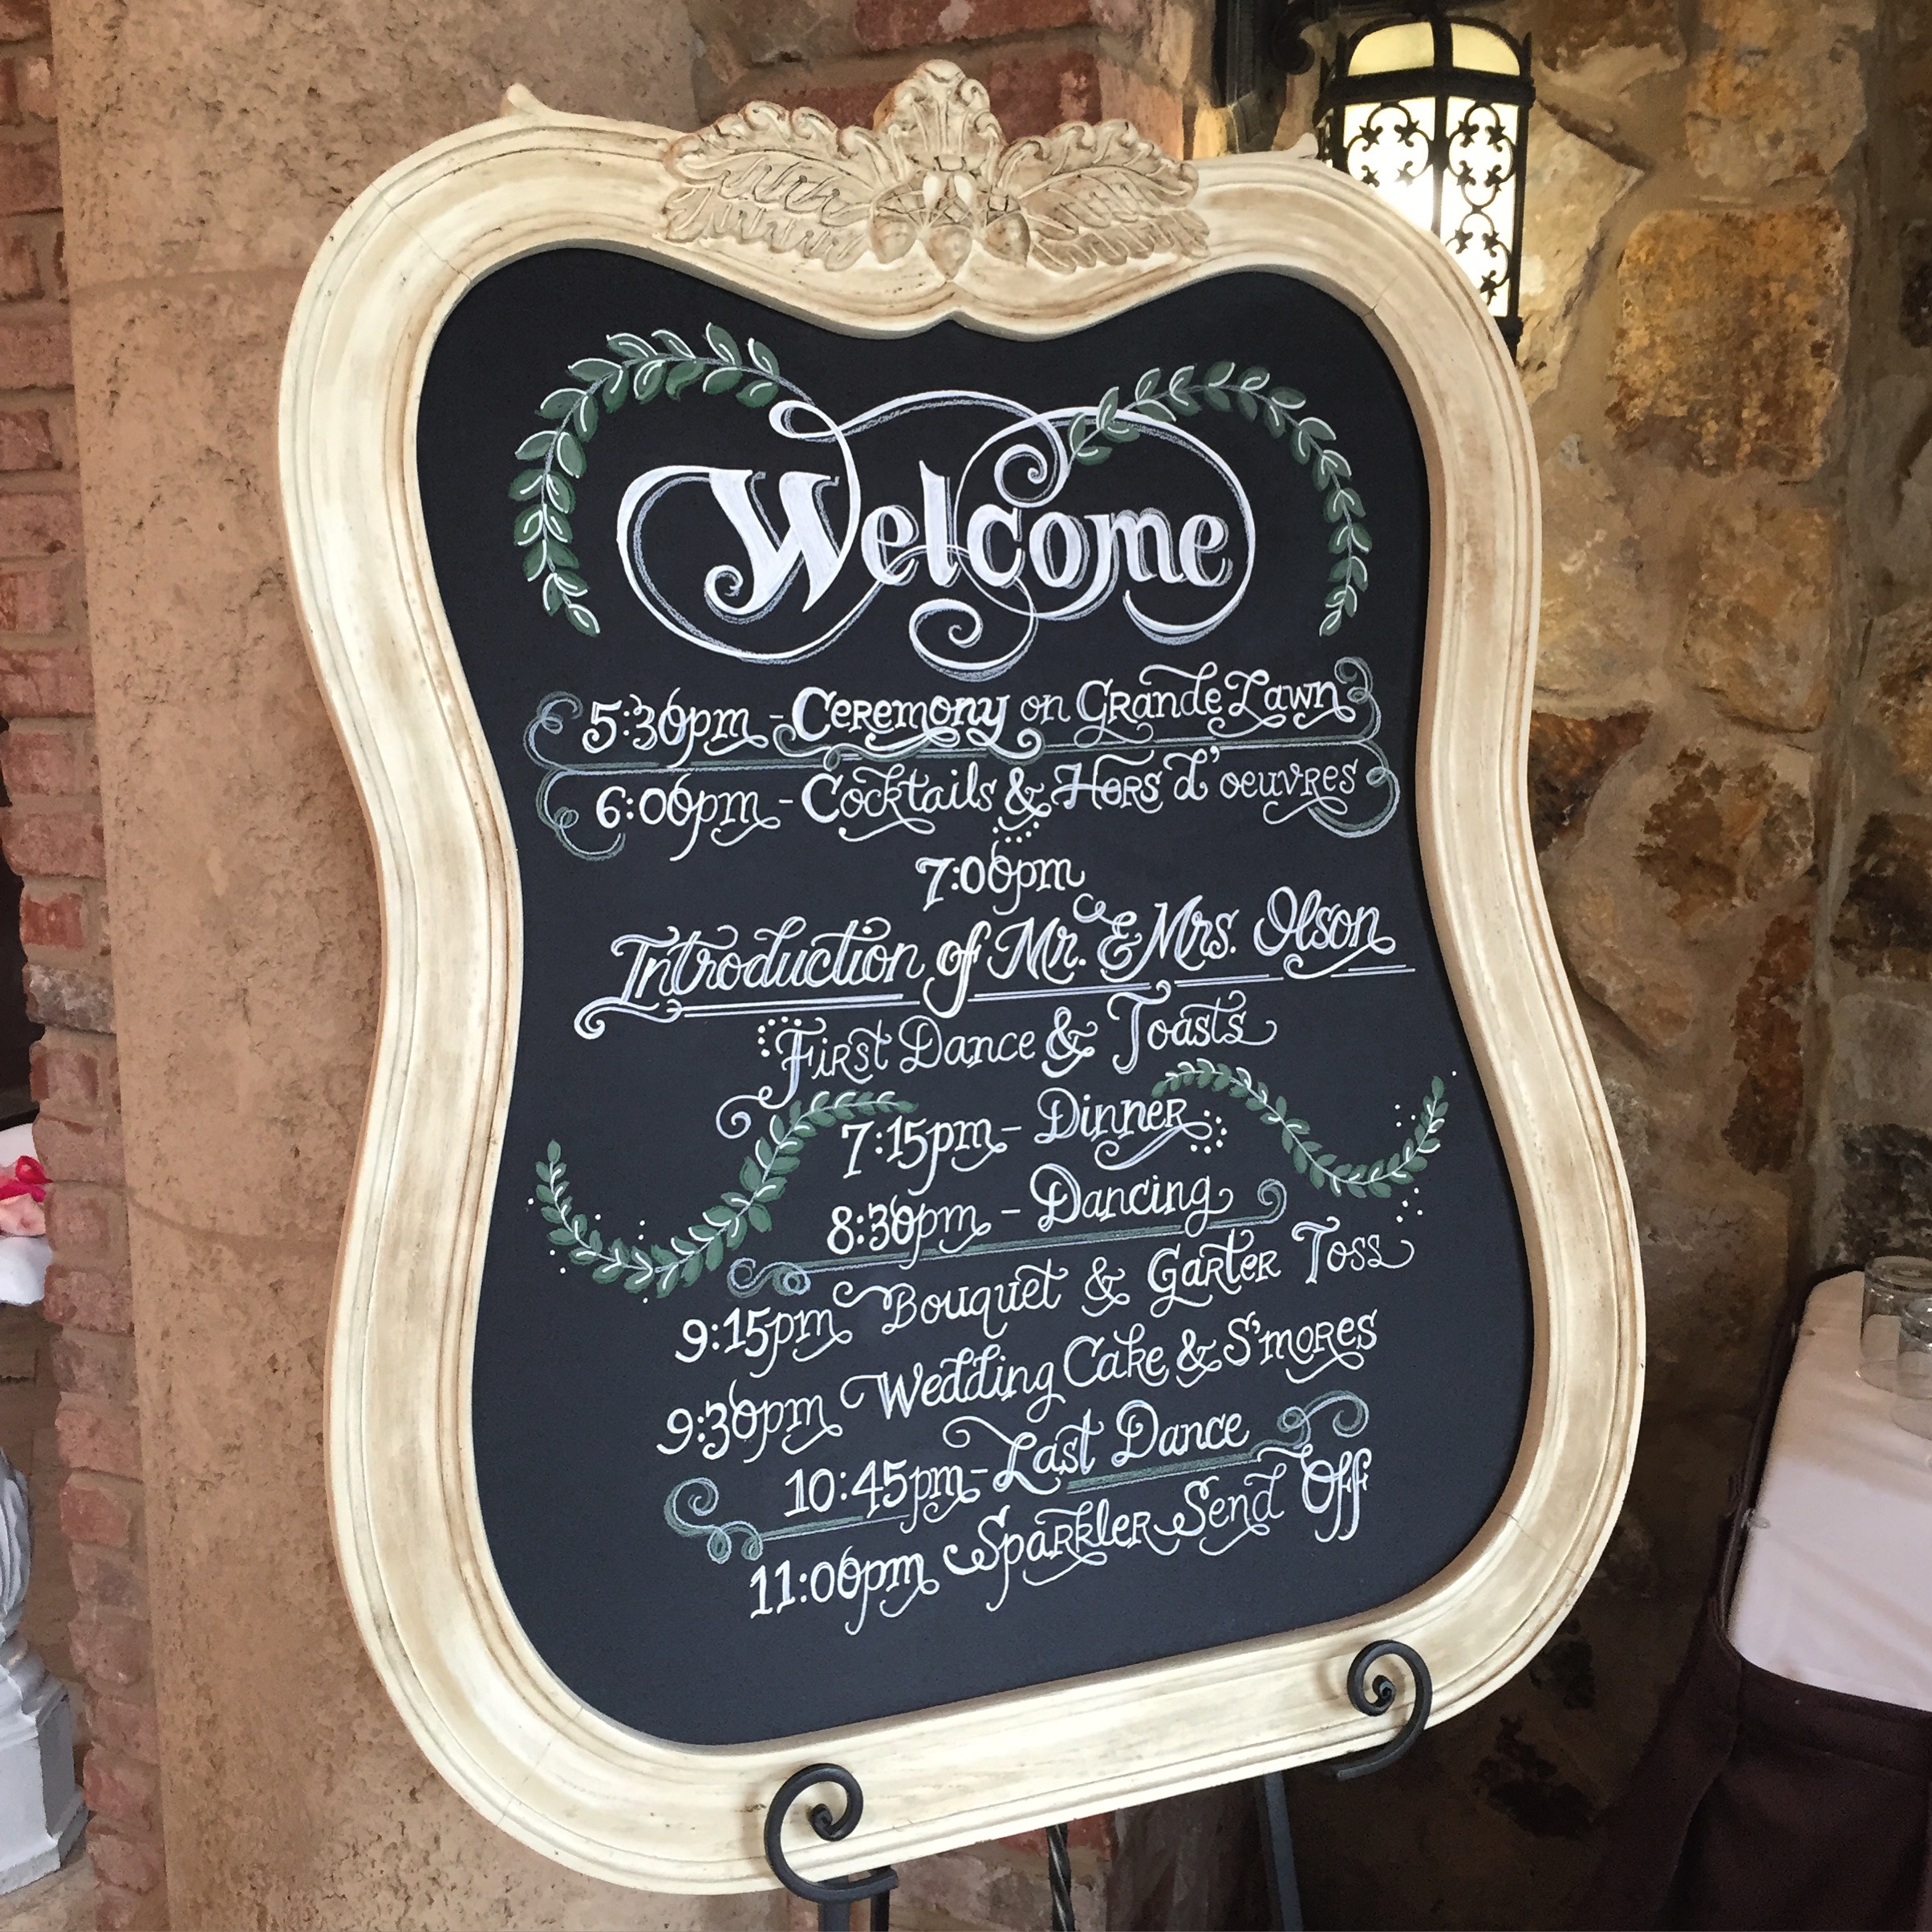 Welcome
5:30pm - Ceremony on Grande Lawn
6:00pm - Cocktails & Hors d'oeuvres
7:00pm
Introduction of Mr. & Mrs. Olson
First Dance & Toasts
7:15pm - Dinner
8:30pm - Dancing
9:15pm Bouquet & Garter Toss
9:30pm Wedding Cake & S'mores
10:45pm - Last Dance
11:00pm Sparkler Send Off